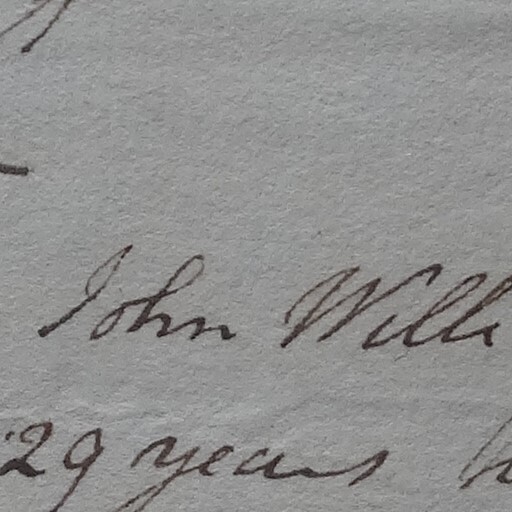 John Willi
29 years